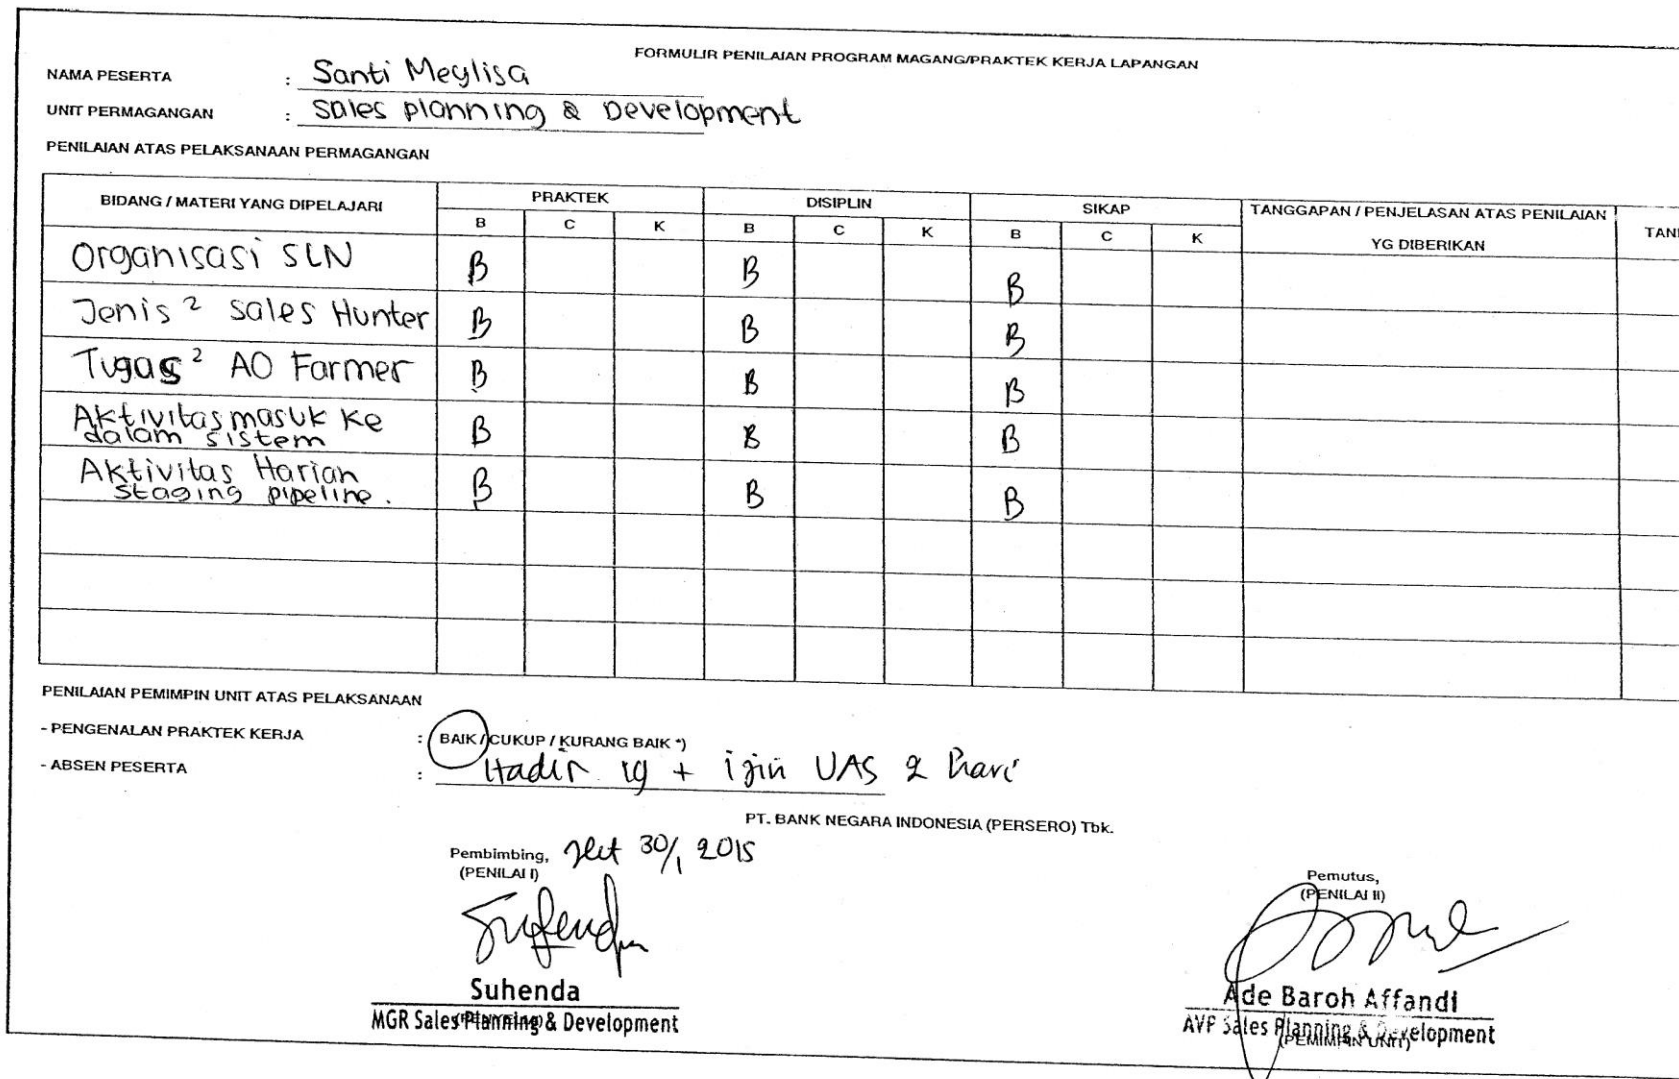 FORMULIR PENILAIAN PROGRAM MAGANG/PRAKTEK KERJA LAPANGAN
NAMA PESERTA : Santi Meylisa
UNIT PERMAGANGAN : Sales planning & Development
PENILAIAN ATAS PELAKSANAAN PERMAGANGAN
BIDANG / MATERI YANG DIPELAJARI PRAKTEK DISIPLIN SIKAP TANGGAPAN / PENJELASAN ATAS PENILAIAN YG DIBERIKAN TAN
B C K B C K B C K
Organisasi SLN B B B
Jenis 2 Sales Hunter B B B
Tugas 2 AO Farmer B B B
Aktivitas masuk ke
dalam sistem B B B
Aktivitas Harian
staging pipeline. B B B
PENILAIAN PEMIMPIN UNIT ATAS PELAKSANAAN
- PENGENALAN PRAKTEK KERJA : BAIK / CUKUP / KURANG BAIK *)
- ABSEN PESERTA : Hadir 19 + ijin UAS 2 hari
PT. BANK NEGARA INDONESIA (PERSERO) Tbk.
Pembimbing, 30/1 2015
(PENILAI I)
Pemutus,
(PENILAI II)
Suhenda
MGR Sales Planning & Development
Ade Baroh Affandi
AVP Sales Planning & Development
(PEMIMPIN UNIT)